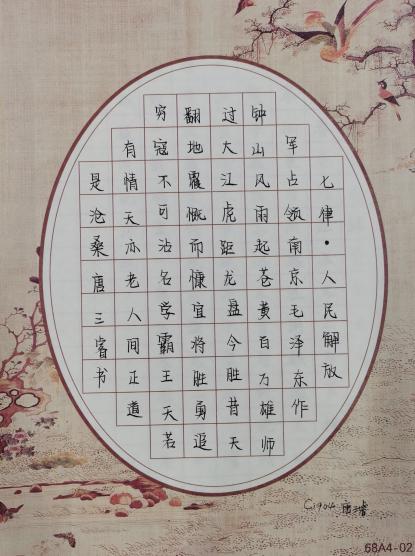 七律·人民解放
军占领南京毛泽东作
钟山风雨起苍黄百万雄师
过大江虎距龙盘今胜昔天
翻地覆慨而慷宜将胜勇追
穷寇不可沽名学霸王天若
有情天亦老人间正道
是沧桑唐三睿书
C1904 唐三睿
68A4-02